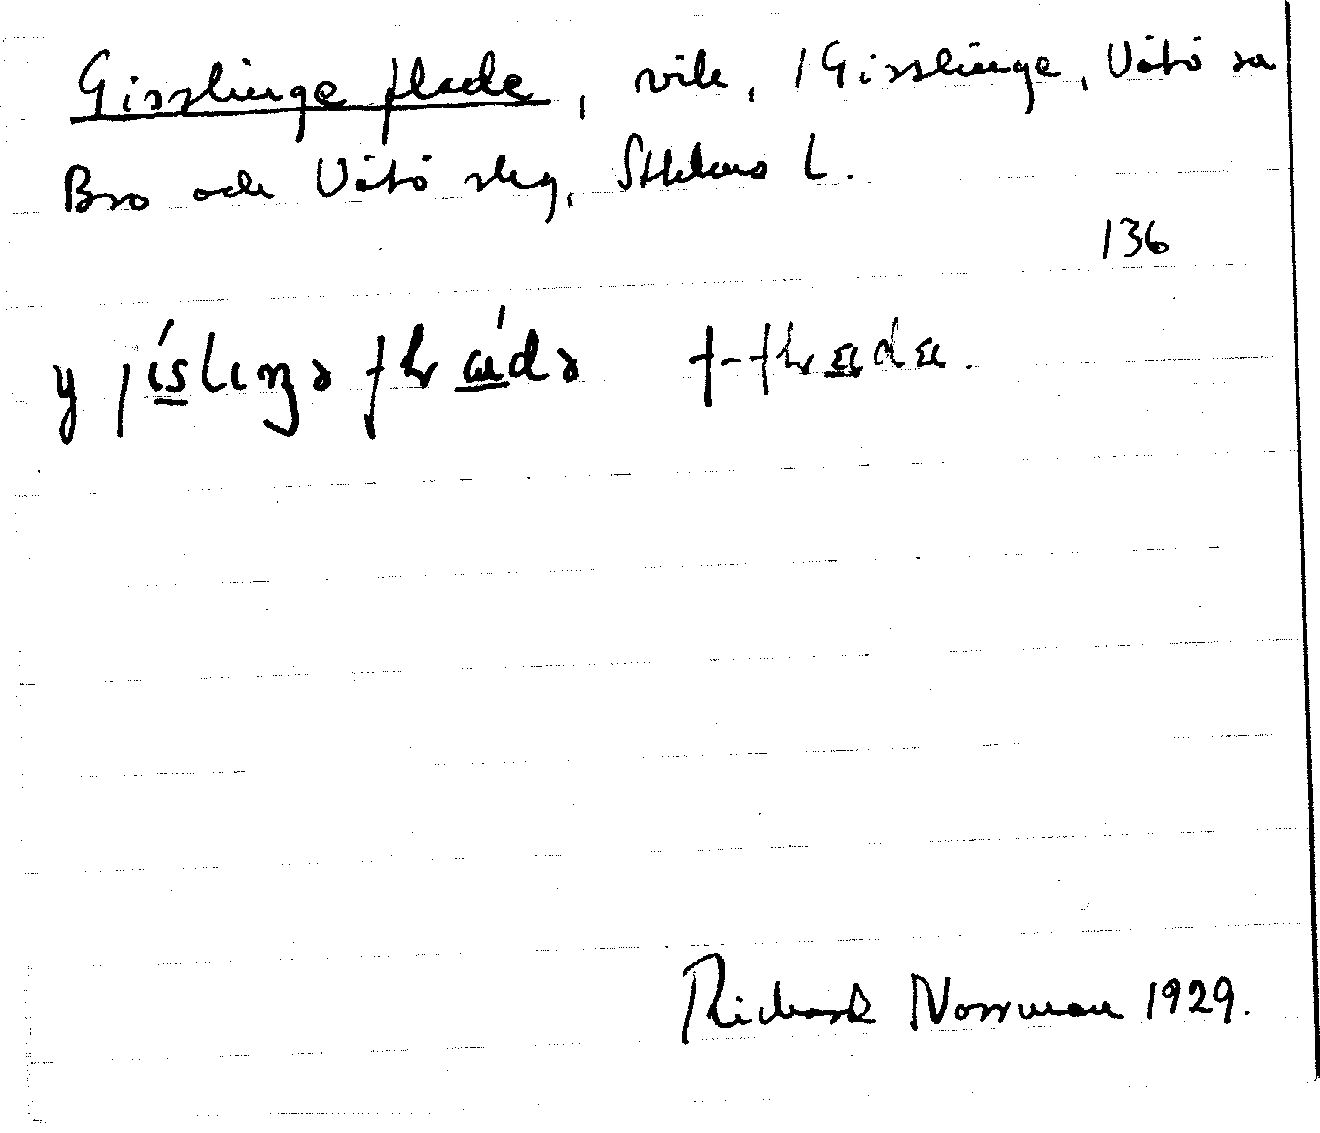 Gisslinge flade, vik, /Gisslinge, Vätö sn
Bro och Vätö skg, Sthlms L.
136
y jísliŋə fḷɑ́də f-fḷɑdɑ.
Richard Norrman 1929.